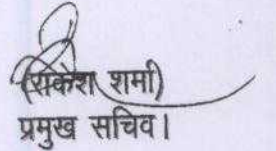 (राकेश शर्मा)
प्रमुख सचिव।